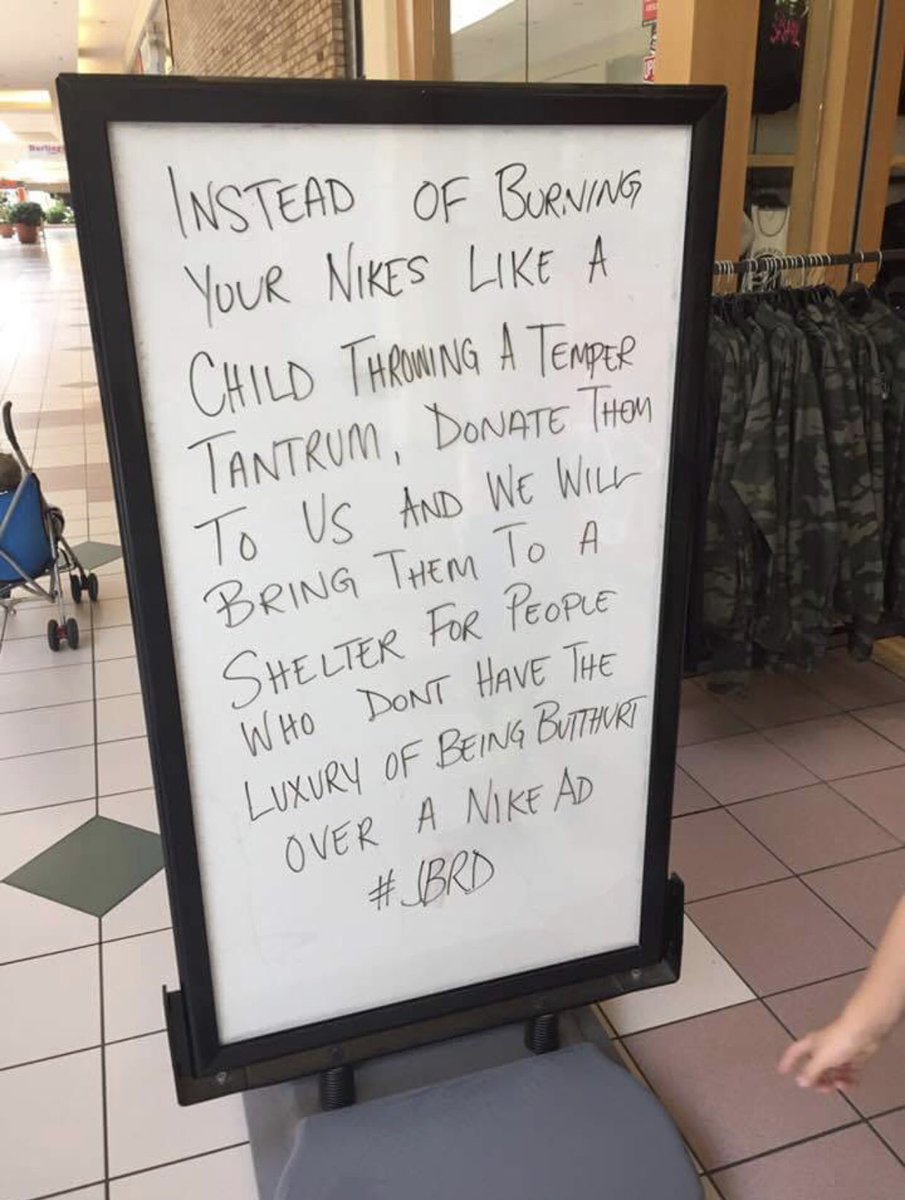 INSTEAD OF BURNING
YOUR NIKES LIKE A
CHILD THROWING A TEMPER
TANTRUM, DONATE THEM
TO US AND WE WILL
BRING THEM TO A
SHELTER FOR PEOPLE
WHO DONT HAVE THE
LUXURY OF BEING BUTTHURT
OVER A NIKE AD
# JBRD